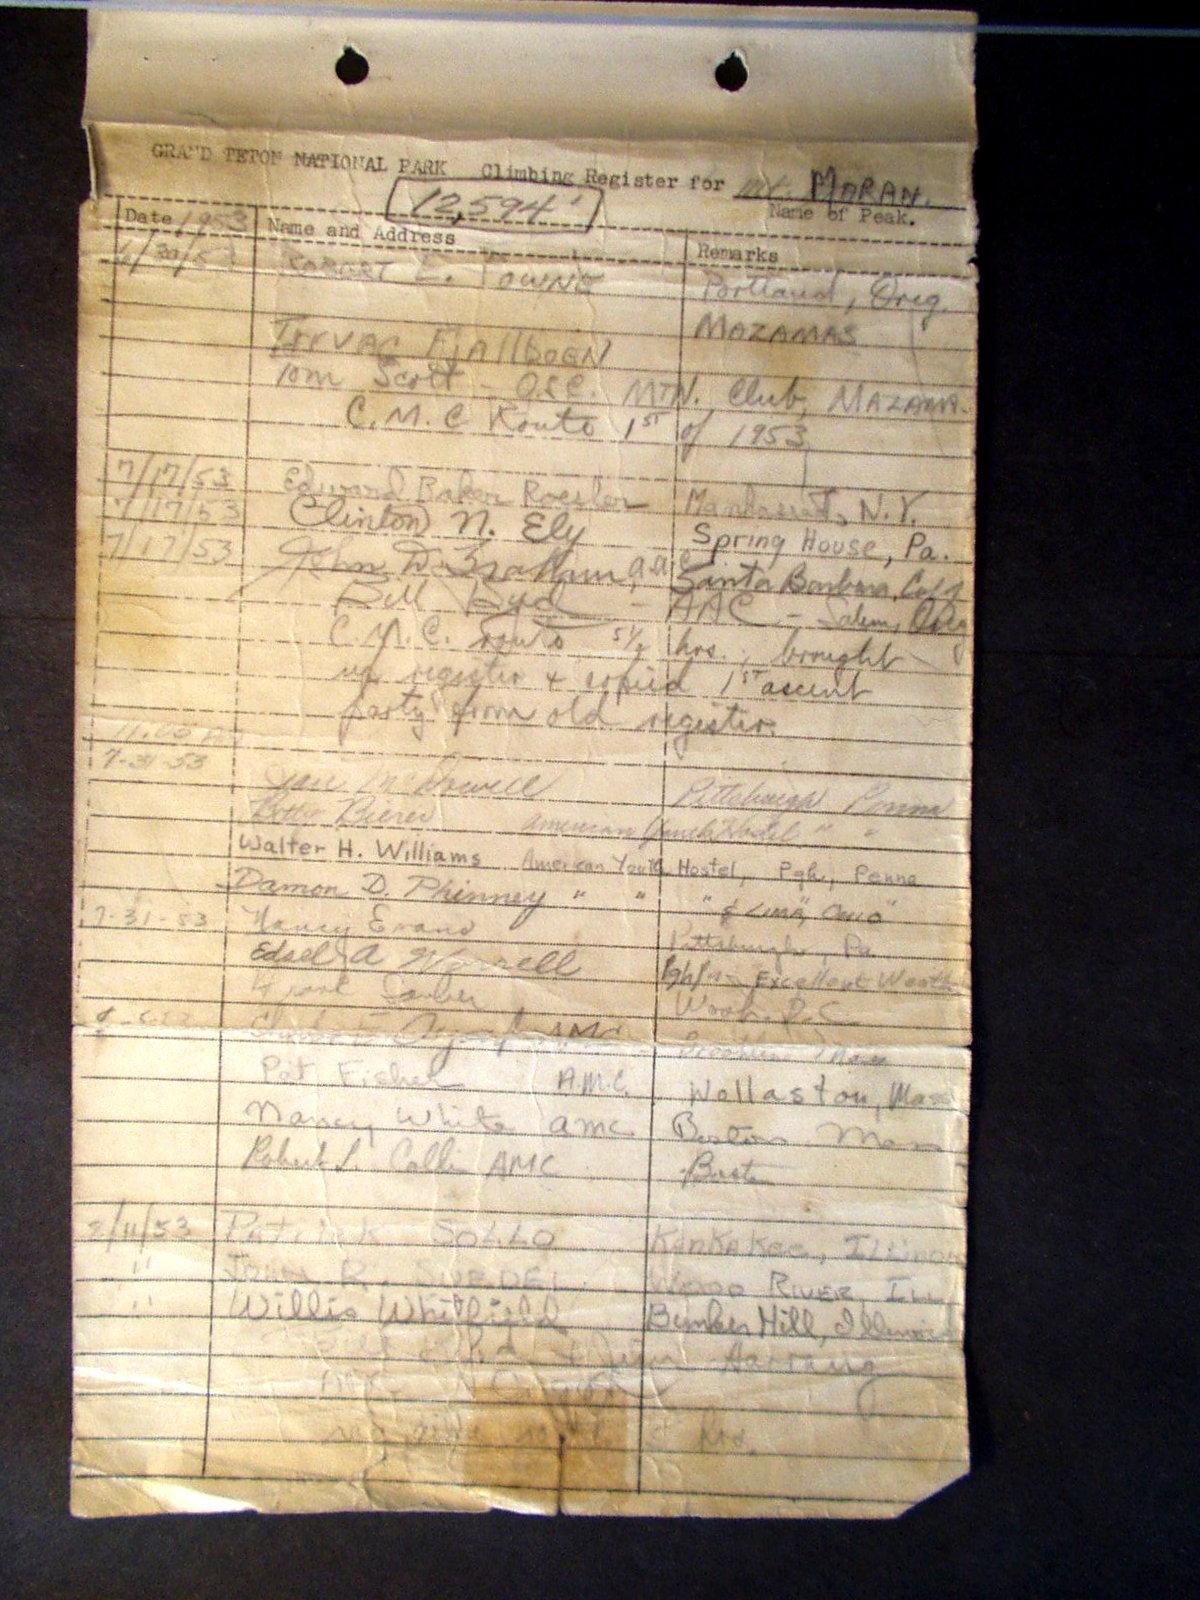 GRAND TETON NATIONAL PARK Climbing Register for Mt. MORAN.
12,594'
Name of Peak.
Date 1953 Name and Address Remarks
6/30/53 ROBERT E. TOWNE Portland, Oreg.
MAZAMAS
Tom Scott - OSC. MTN. Club, MAZAMA-
C.M.C Route 1ST of 1953
7/17/53 Edward Baker Roesler N.Y.
7/17/53 Clinton N. Ely Spring House, Pa.
7/17/53 John D. a.a.c Santa Barbara, Calif
Bill Byrd - AAC - Salem, Oreg
C.M.C. route 5½ hrs., brought
up register & copied 1ST ascent
party from old register.
11:00
7-31-53
McDowell Pittsburgh Penna
American Youth Hostel " "
Walter H. Williams American Youth Hostel, Pgh, Penna
Damon D. Phinney " " " & Lima, Ohio "
7-31-53 Nancy Evans Pittsburgh, Pa
Edsel A Pgh Excellent Weath
Wash. D.C.
AMC Mass
Pat Fisher A.M.C. Wollaston, Mass
Nancy White AMC Boston Mass
Robert L. AMC Bost
8/11/53 Patrick SOLLO Kankakee, Illinois
" JOHN R. WOOD RIVER, ILL
" Willis Whitfield Bunker Hill, Illinois